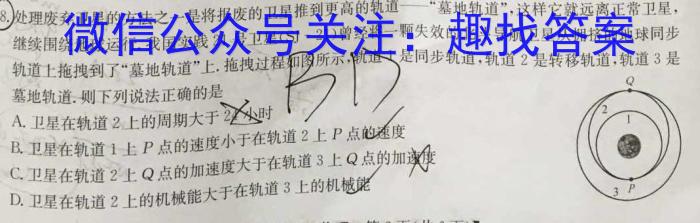 8.处理废弃卫星的方法之一是将报废的卫星推到更高的轨道——“墓地轨道”,这样它就远离正常卫星,
微信公众号关注:趣找答案
继续围绕地球运行.我国实践 号卫星 曾经将一颗失效的 卫星从拥挤的地球同步
轨道上拖拽到了“墓地轨道”上.拖拽过程如图所示,轨道1是同步轨道,轨道2是转移轨道,轨道3是
墓地轨道.则下列说法正确的是
A.卫星在轨道2上的周期大于24小时
B.卫星在轨道1上P点的速度小于在轨道2上P点的速度
C.卫星在轨道2上Q点的加速度大于在轨道3上Q点的加速度
D.卫星在轨道2上的机械能大于在轨道3上的机械能
BD
Q
2
1
3
P